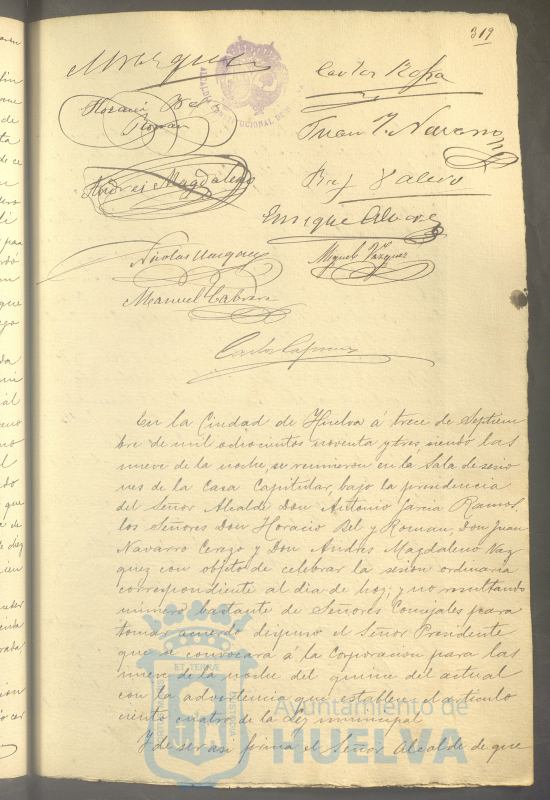 319
Carlos Rofa
Horacio Bel y
Roman
Juan J. Navarro
Andres Magdaleno
Enrique
Miguel Vazquez
Manuel
Carlos
ALCALDIA CONSTITUCIONAL DE
En la Ciudad de Huelva á trece de Septiem
bre de mil ochocientos noventa y tres, siendo las
nueve de la noche, se reunieron en la Sala de sesio
nes de la Casa Capitular, bajo la presidencia
del Señor Alcalde Don Antonio Garcia Ramos,
los Señores Don Horacio Bel y Roman, Don Juan
Navarro Cerezo y Don Andres Magdaleno Vaz
quez con objeto de celebrar la sesion ordinaria
correspondiente al dia de hoy; y no resultando
número bastante de Señores Concejales para
tomar acuerdo dispuso el Señor Presidente
que se convocará á la Corporacion para las
nueve de la noche del quince del actual
con la advertencia que establece el articulo
ciento cuatro de la Ley municipal
Y de ser asi firma el Señor Alcalde de que
Ayuntamiento de
HUELVA